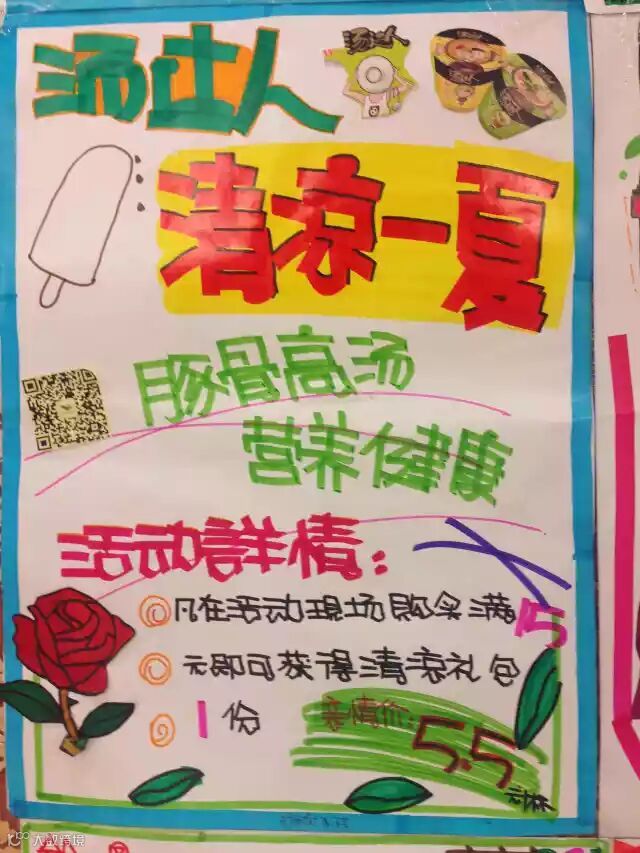 汤达人
汤达人
清凉一夏
豚骨高汤
营养健康
活动詳情:
凡在活动現场购买满15
元即可获得清凉礼包
1份
亲情价:
5.5
元/杯
大数跨境